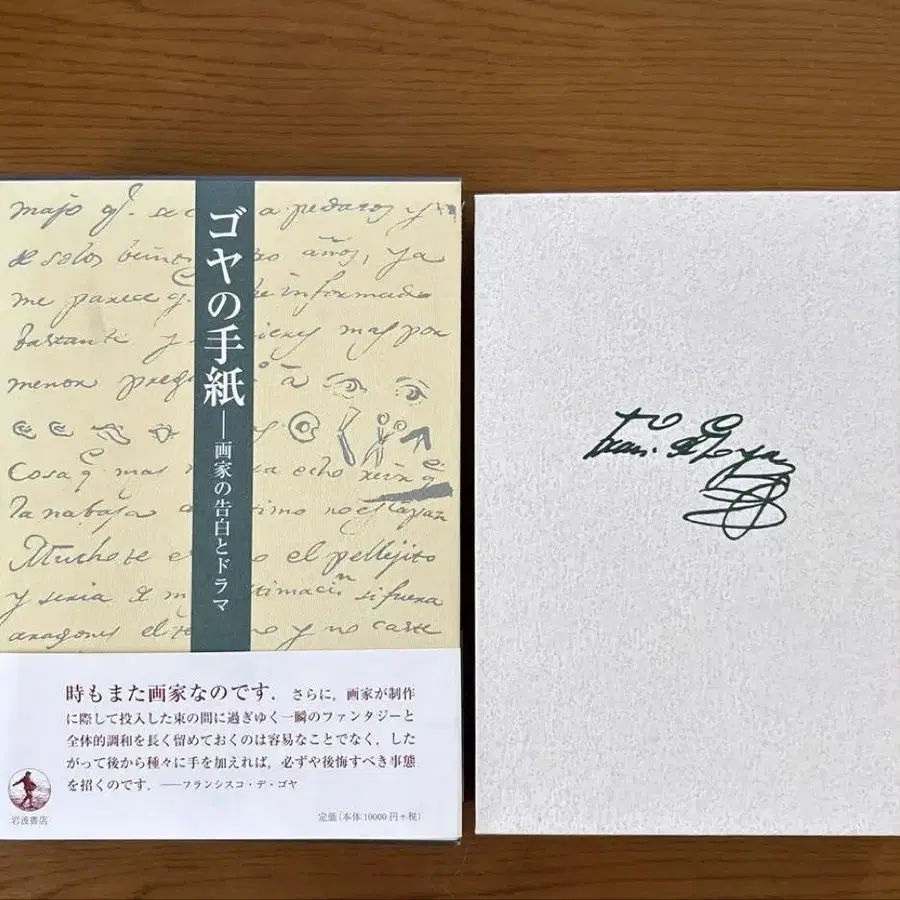 majo qͤ. se c a pedazos y
de solos beint años, ya
me parece q. he informado
bastante y quieres mas por
menor preg a
Cosa q. mas echo reir q.
la nabaja timo no es tapan
Muchote e o el pellejito
y seria de m stimacin si fuera
aragones el t o y no carte
ゴヤの手紙
―画家の告白とドラマ
時もまた画家なのです．さらに，画家が制作
に際して投入した束の間に過ぎゆく一瞬のファンタジーと
全体的調和を長く留めておくのは容易なことでなく，した
がって後から種々に手を加えれば，必ずや後悔すべき事態
を招くのです．――フランシスコ・デ・ゴヤ
岩波書店
定価（本体 10000 円＋税）
Fran. de Goya